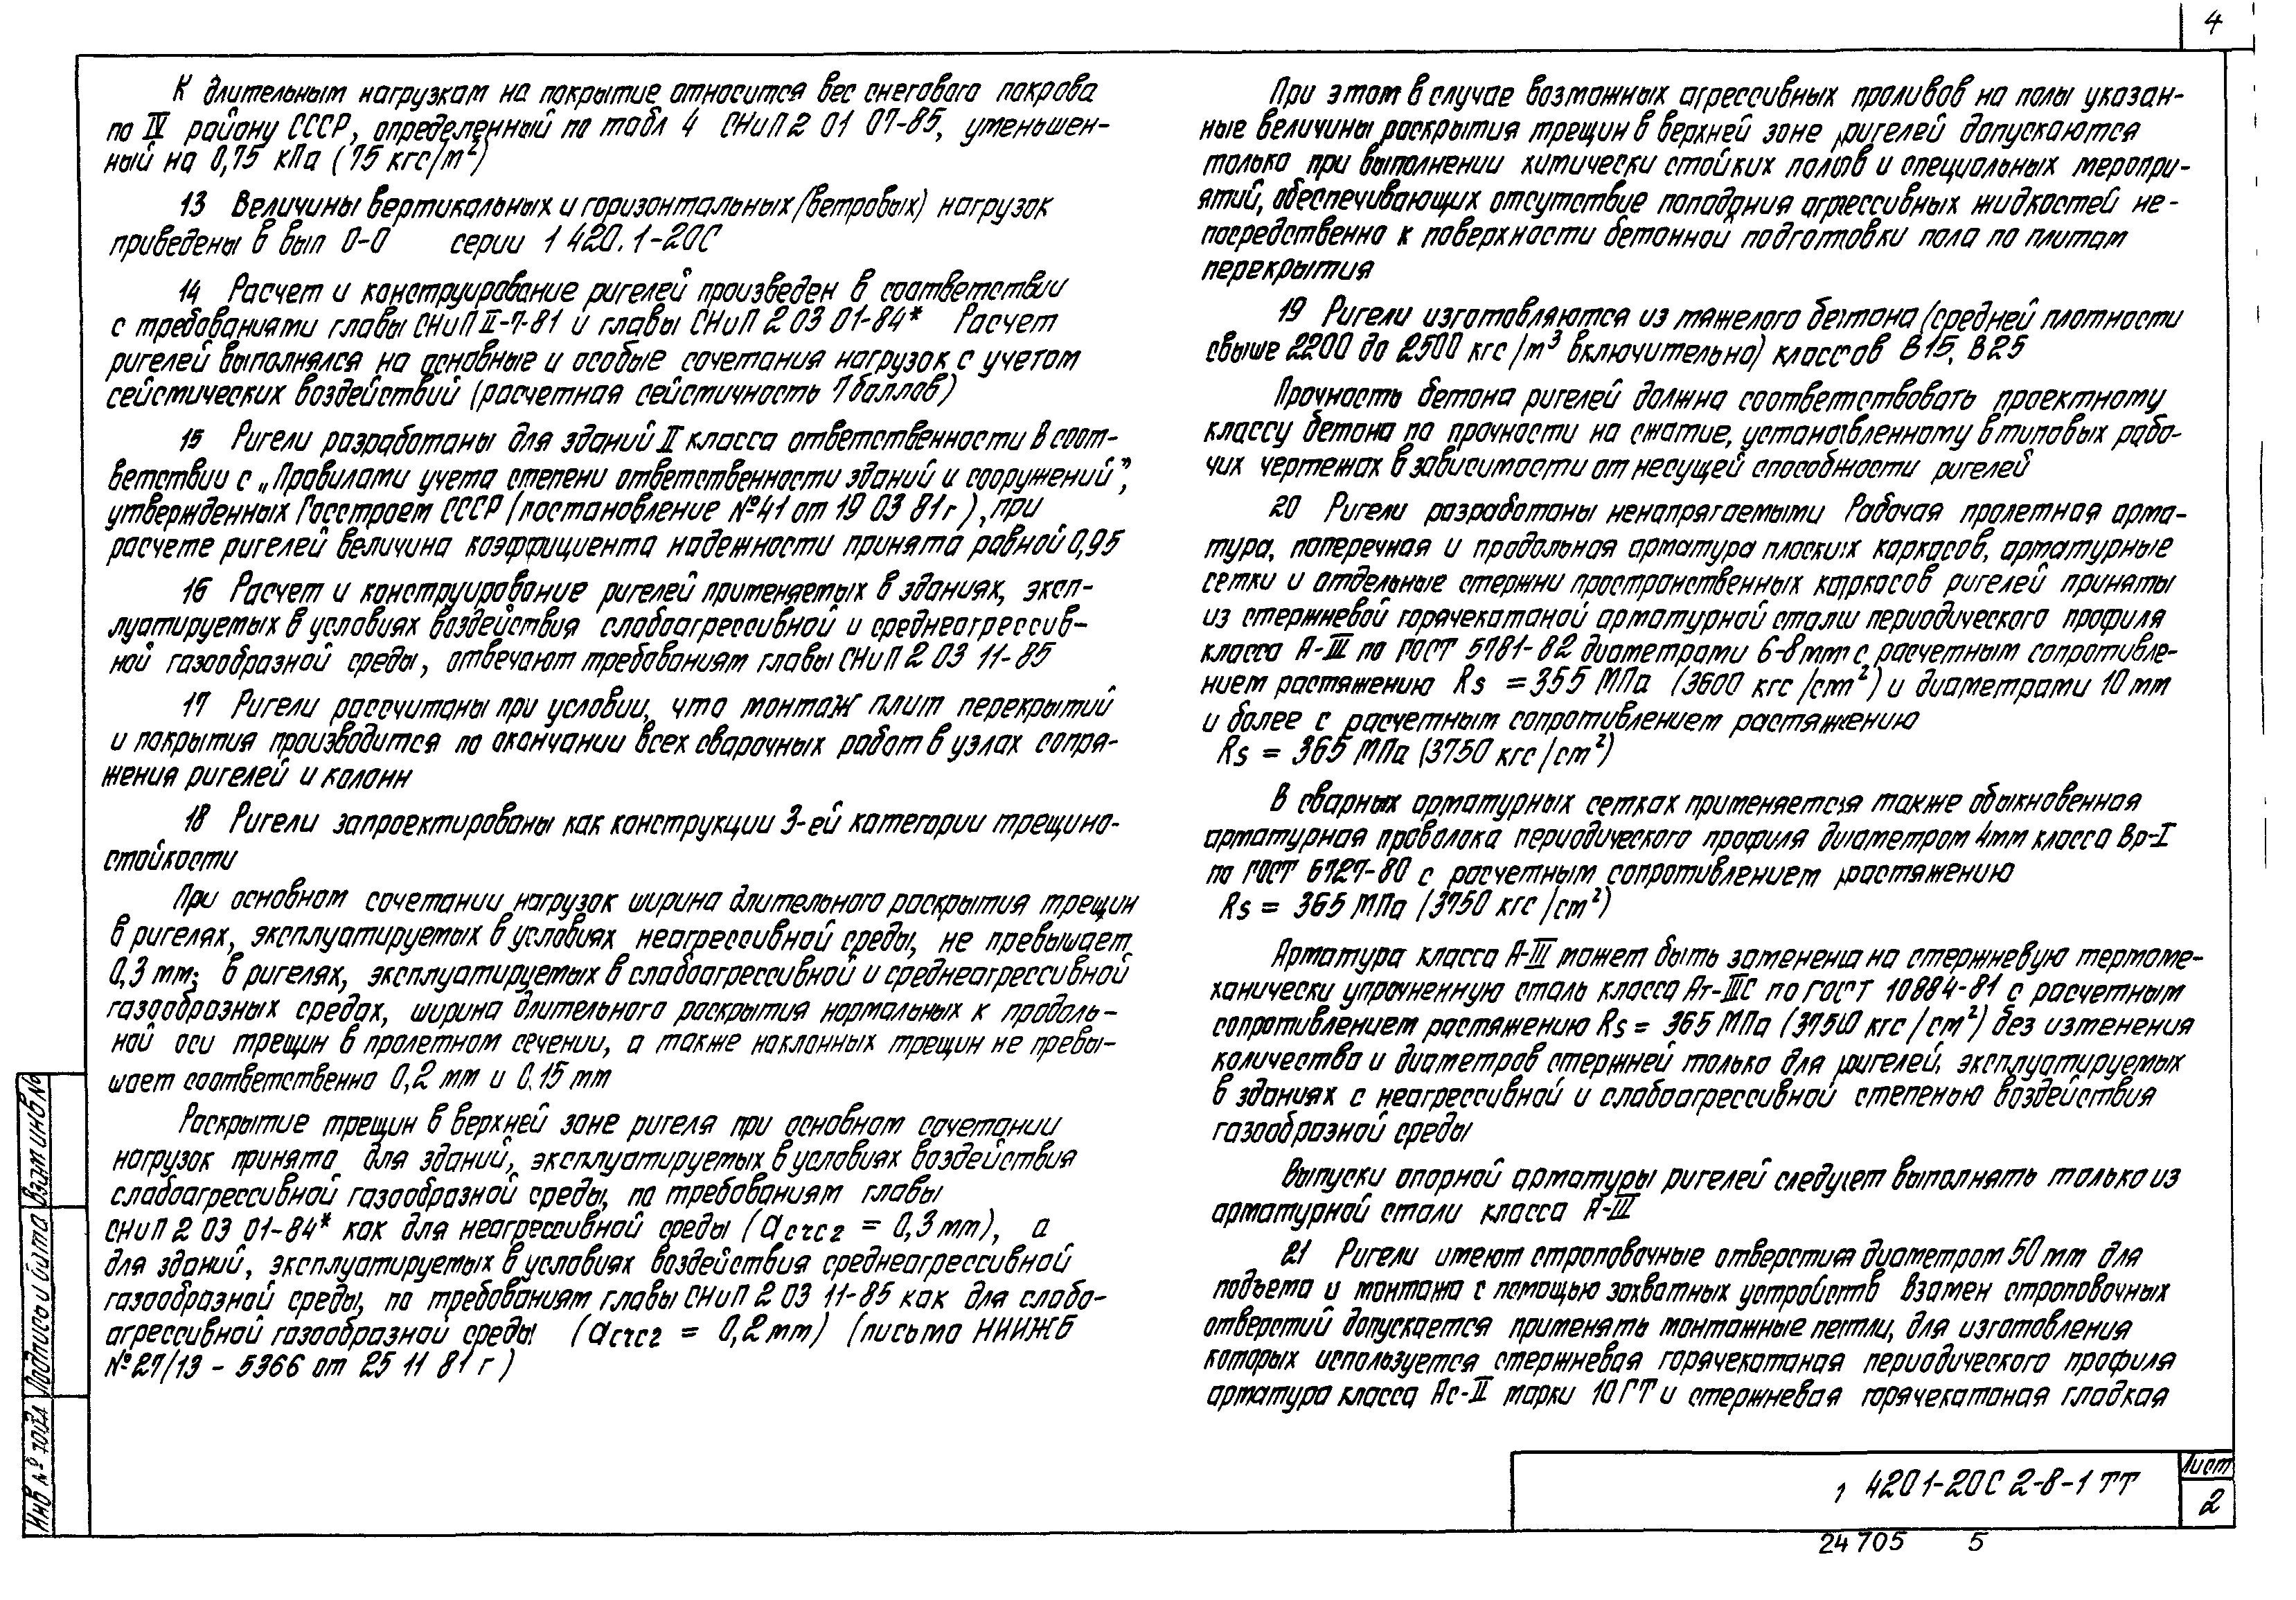 4
К длительным нагрузкам на покрытие относится вес снегового покрова
по IV району СССР, определенный по табл 4 СНиП 2 01 07-85, уменьшен-
ный на 0,75 кПа (75 кгс/м²)
13 Величины вертикальных и горизонтальных (ветровых) нагрузок
приведены в вып 0-0 серии 1 420.1-20С
14 Расчет и конструирование ригелей произведен в соответствии
с требованиями главы СНиП II-7-81 и главы СНиП 2 03 01-84* Расчет
ригелей выполнялся на основные и особые сочетания нагрузок с учетом
сейсмических воздействий (расчетная сейсмичность 7 баллов)
15 Ригели разработаны для зданий II класса ответственности В соот-
ветствии с „Правилами учета степени ответственности зданий и сооружений",
утвержденных Госстроем СССР (постановление №41 от 19 03 81г), при
расчете ригелей величина коэффициента надежности принята равной 0,95
16 Расчет и конструирование ригелей применяемых в зданиях, эксп-
луатируемых в условиях воздействия слабоагрессивной и среднеагрессив-
ной газообразной среды, отвечают требованиям главы СНиП 2 03 11-85
17 Ригели рассчитаны при условии, что монтаж плит перекрытий
и покрытия производится по окончании всех сварочных работ в узлах сопря-
жения ригелей и колонн
18 Ригели запроектированы как конструкции 3-ей категории трещино-
стойкости
При основном сочетании нагрузок ширина длительного раскрытия трещин
в ригелях, эксплуатируемых в условиях неагрессивной среды, не превышает
0,3 мм; в ригелях, эксплуатируемых в слабоагрессивной и среднеагрессивной
газообразных средах, ширина длительного раскрытия нормальных к продоль-
ной оси трещин в пролетном сечении, а также наклонных трещин не превы-
шает соответственно 0,2 мм и 0.15 мм
Раскрытие трещин в верхней зоне ригеля при основном сочетании
нагрузок принята для зданий, эксплуатируемых в условиях воздействия
слабоагрессивной газообразной среды, по требованиям главы
СНиП 2 03 01-84* как для неагрессивной среды (acrc2 = 0,3 мм), а
для зданий, эксплуатируемых в условиях воздействия среднеагрессивной
газообразной среды, по требованиям главы СНиП 2 03 11-85 как для слабо-
агрессивной газообразной среды (acrc2 = 0,2 мм) (письмо НИИЖБ
№27/13 - 5366 от 25 11 81 г)
При этом в случае возможных агрессивных проливов на полы указан-
ные величины раскрытия трещин в верхней зоне ригелей допускаются
только при выполнении химически стойких полов и специальных меропри-
ятий, обеспечивающих отсутствие попадания агрессивных жидкостей не-
посредственно к поверхности бетонной подготовки пола по плитам
перекрытия
19 Ригели изготовляются из тяжелого бетона (средней плотности
свыше 2200 до 2500 кгс/м³ включительно) классов В15, В25
Прочность бетона ригелей должна соответствовать проектному
классу бетона по прочности на сжатие, установленному в типовых рабо-
чих чертежах в зависимости от несущей способности ригелей
20 Ригели разработаны ненапрягаемыми Рабочая пролетная арма-
тура, поперечная и продольная арматура плоских каркасов, арматурные
сетки и отдельные стержни пространственных каркасов ригелей приняты
из стержневой горячекатаной арматурной стали периодического профиля
класса А-III по ГОСТ 5781-82 диаметрами 6-8 мм с расчетным сопротивле-
нием растяжению Rs = 355 МПа (3600 кгс/см²) и диаметрами 10 мм
и более с расчетным сопротивлением растяжению
Rs = 365 МПа (3750 кгс/см²)
В сварных арматурных сетках применяется также обыкновенная
арматурная проволока периодического профиля диаметром 4мм класса Вр-I
по ГОСТ 6727-80 с расчетным сопротивлением растяжению
Rs = 365 МПа (3750 кгс/см²)
Арматура класса А-III может быть заменена на стержневую термоме-
ханически упрочненную сталь класса Ат-IIIС по ГОСТ 10884-81 с расчетным
сопротивлением растяжению Rs = 365 МПа (3750 кгс/см²) без изменения
количества и диаметров стержней только для ригелей, эксплуатируемых
в зданиях с неагрессивной и слабоагрессивной степенью воздействия
газообразной среды
Выпуски опорной арматуры ригелей следует выполнять только из
арматурной стали класса А-III
21 Ригели имеют строповочные отверстия диаметром 50 мм для
подъема и монтажа с помощью захватных устройств Взамен строповочных
отверстий допускается применять монтажные петли, для изготовления
которых используется стержневая горячекатаная периодического профиля
арматура класса Ас-II марки 10ГТ и стержневая горячекатаная гладкая
Инв № подл Подпись и дата Взам инв №
1 420 1-20С 2-8-1 ТТ
Лист
2
24705 5